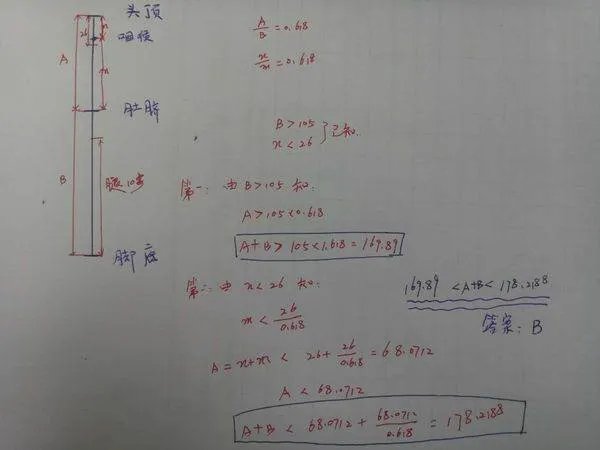 头顶
咽喉
26
n
m
A
肚脐
B
腿105
脚底
A/B = 0.618
n/m = 0.618
B > 105
n < 26
} 已知.
第一: 由 B > 105 知:
A > 105×0.618
A+B > 105×1.618 = 169.89
第二: 由 n < 26 知:
m < 26/0.618
A = n+m < 26 + 26/0.618 = 68.0712
A < 68.0712
A+B < 68.0712 + 68.0712/0.618 = 178.2188
169.89 < A+B < 178.2188
答案: B